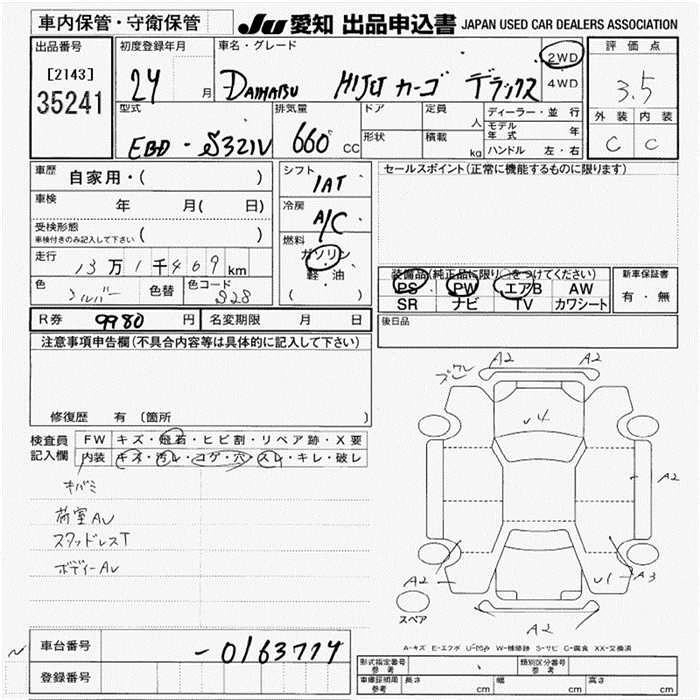 車内保管・守衛保管
JU 愛知 出品申込書 JAPAN USED CAR DEALERS ASSOCIATION
出品番号
[2143]
35241
初度登録年月
24 月
車名・グレード
DAIHATSU HIJET カーゴ デラックス
2WD
4WD
評価点
3.5
外装 内装
C C
型式
EBD-S321V
排気量
660 CC
ドア
形状
定員
人
積載
kg
ディーラー・並行
モデル年式 年
ハンドル 左・右
車歴 自家用・( )
車検 年 月( 日)
受検形態
車検付きのみ記入して下さい ( )
走行 13万1千469km
色 シルバー 色替 色コード S28
シフト
IAT
冷房
A/C
燃料
ガソリン
・
軽油
( )
セールスポイント(正常に機能するものに限ります)
装備品(純正品に限り○をつけてください)
PS PW エアB AW
SR ナビ TV カワシート
新車保証書
有・無
後日品
R券 9980 円 名変期限 月 日
注意事項申告欄(不具合内容等は具体的に記入して下さい)
修復歴 有 〔箇所 〕
検査員記入欄
FW キズ・飛石・ヒビ割・リペア跡・X要
内装 キズ・汚レ・コゲ・穴・スレ・キレ・破レ
キバミ
荷室AU
スタッドレスT
ボディーAU
A2 A2
4
A2
A2
1 A3
A2
スペア
A-キズ E-エクボ U-凹み W-補修跡 S-サビ C-腐食 XX-交換済
車台番号 -0163774
登録番号
形式指定番号
参考
類別区分番号
参考
車庫証明用
参考
長さ cm 幅 cm 高さ cm